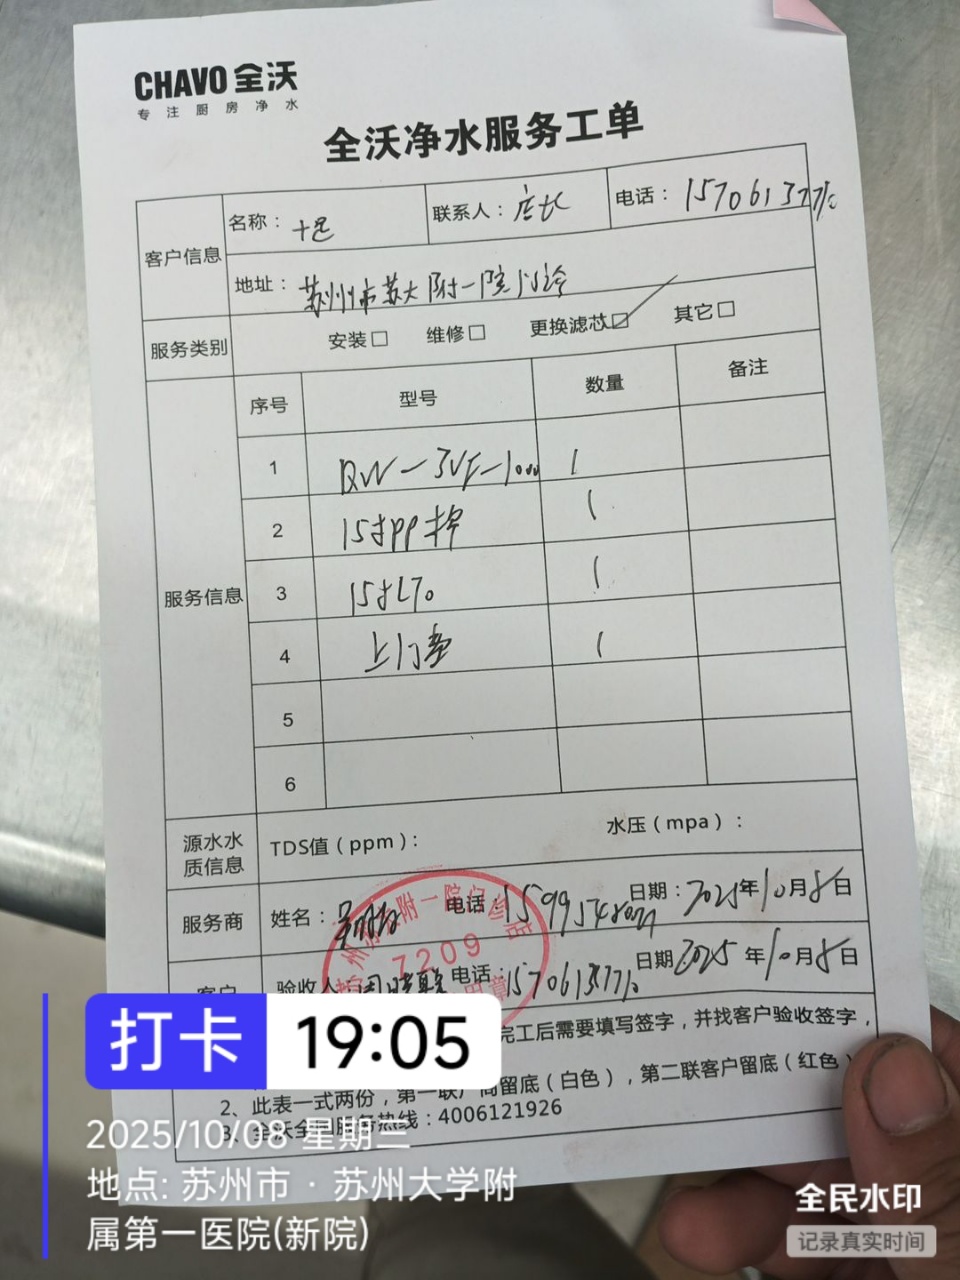 CHAVO 全沃
专注厨房净水
全沃净水服务工单
客户信息
名称： 十足 联系人：店长 电话：
地址：苏州市苏大附一院门诊
服务类别 安装□ 维修□ 更换滤芯☑ 其它□
服务信息
序号 型号 数量 备注
1 1
2 15寸PP棉 1
3 15寸 1
4 上门费 1
5
6
源水水质信息 TDS值（ppm）： 水压（mpa）：
服务商 姓名： 电话： 日期：2025年10月8日
客户 验收人 电话： 日期 2025年10月8日
附一院门诊店
7209
完工后需要填写签字，并找客户验收签字，
2、此表一式两份，第一联厂商留底（白色），第二联客户留底（红色）
3、全沃全国服务热线：4006121926
打卡 19:05
2025/10/08 星期三
地点: 苏州市 · 苏州大学附
属第一医院(新院)
全民水印
记录真实时间